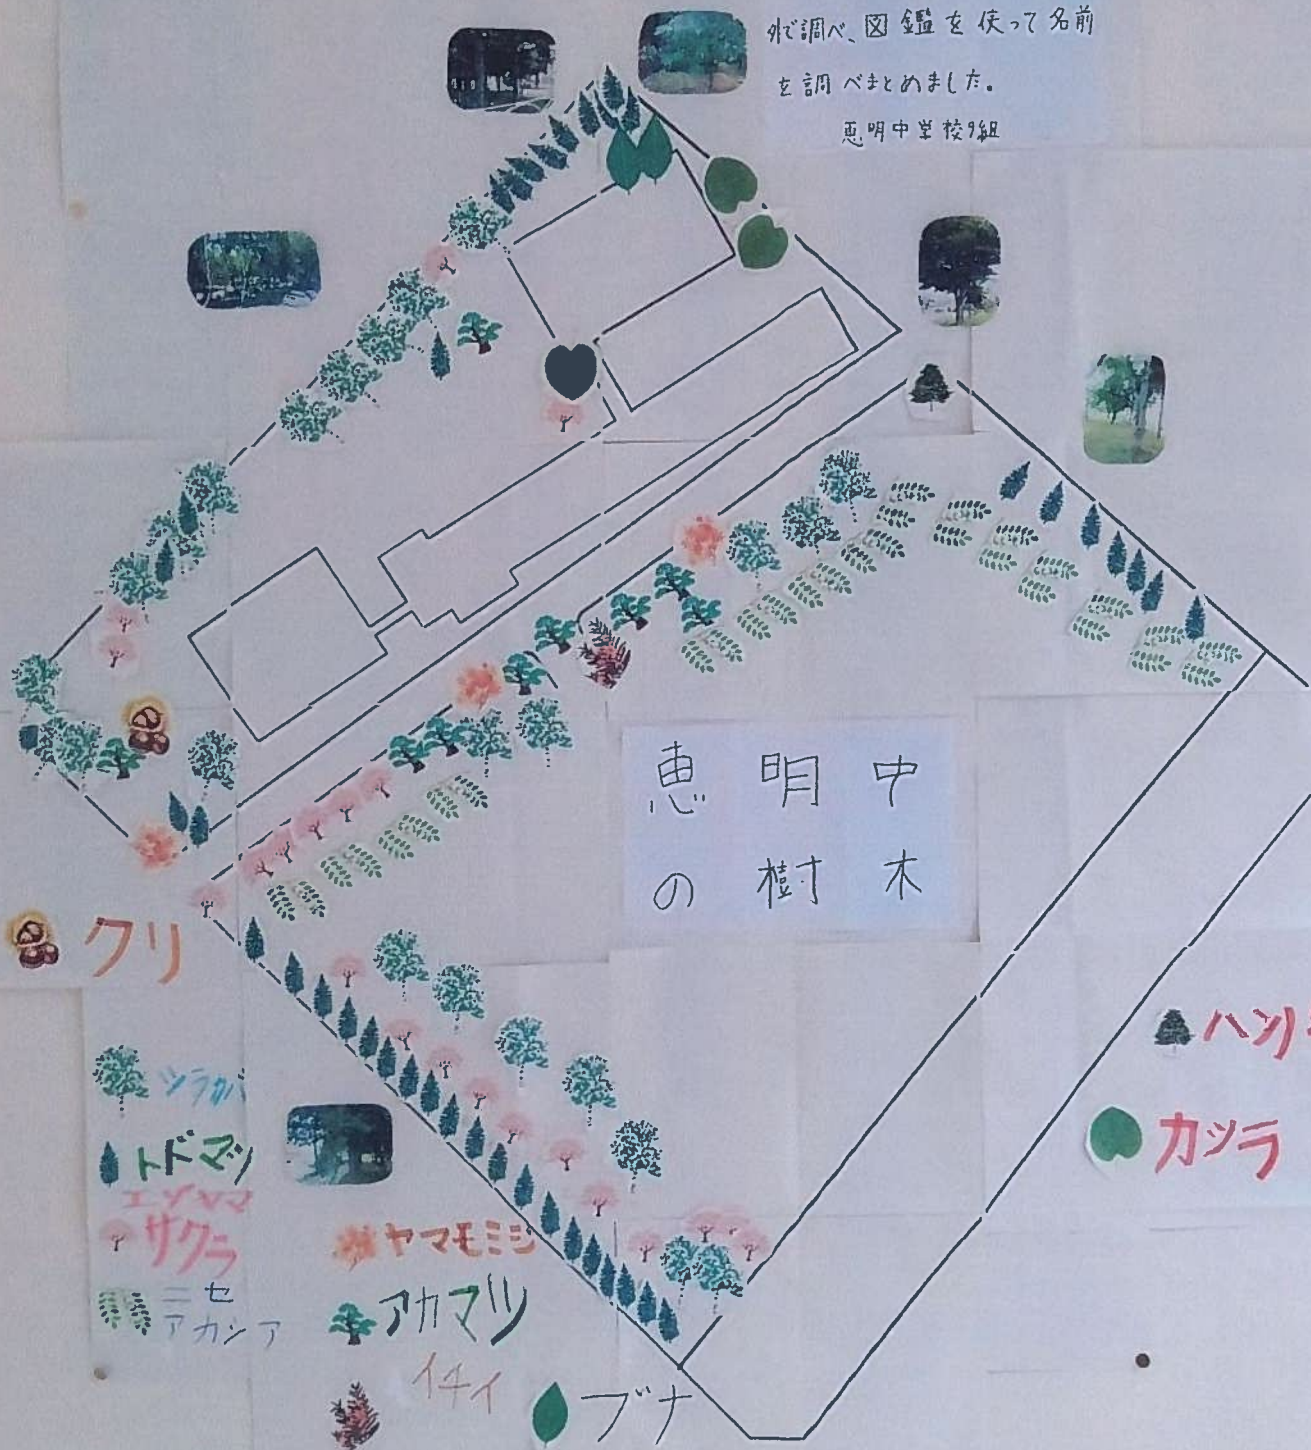 外で調べ、図鑑を使って名前
を調べまとめました。
恵明中学校9組
恵明中
の樹木
クリ
シラカバ
トドマツ
エゾヤマ
サクラ
ニセ
アカシア
ヤマモミジ
アカマツ
イチイ
ブナ
ハン
カツラ